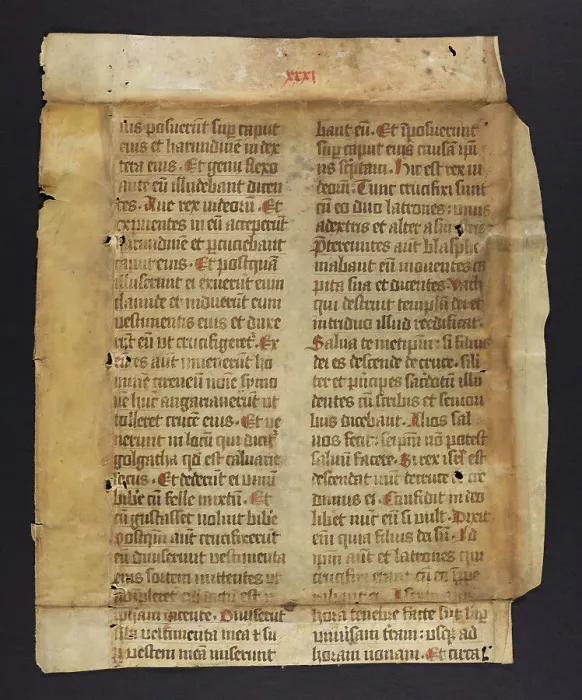 xxxi
nis posuerūt sup caput
eius et harundinē in dex
tera eius. Et genu flexo
ante eū illudebant dicen
tes. Aue rex iudeorū. Et
expuentes in eū acceperūt
harundinē et pcuciebant
caput eius. Et postquā
illuserunt ei exuerūt eum
clamide et induerūt eum
uestimentis eius et duxe
rūt eū ut crucifigerēt. Ex
eūtes aūt inuenerūt ho
minē cireneū noīe symo
nē hūc angariauerūt ut
tolleret crucē eius. Et ue
nerunt in locū qui dicit
golgatha qd est caluarie
locus. Et dederūt ei uinū
bibe cū felle mixtū. Et
cū gustasset noluit bibe
postqm aūt crucifixerūt
eū diuiserunt uestimenta
eius sortem mittentes ut
Diuiserūt
sibi uestimenta mea et su
p uestem meā miserunt
bant eū. Et īposuerunt
sup caput eius causā ipi
us scptam. Hic est rex iu
deorū. Tunc crucifixi sunt
cū eo duo latrones: unus
a dextris et alter a sinistris
Ptereuntes aūt blasphe
mabant eū mouentes ca
pita sua et dicentes. Vach
qui destruit templū dei et
in triduo illud reedificat.
Salua temetipm: si filius
dei es descende de cruce. Sili
ter et pncipes sacdotū illu
dentes cū scribis et seniori
bus dicebant. Alios sal
uos fecit: seipm nō potest
saluū facere. Si rex isrl est
descendat nūc de cruce et cre
dimus ei. Confidit in deo
libet nūc eū si uult. Dixit
eīm quia filius dei sū. Id
ipm aūt et latrones qui
crucifixi erant cū eo
hora tenebre facte sūt sup
uniūsam tram: usqз ad
horam nonam. Et circa